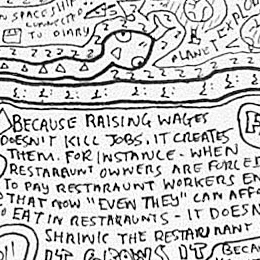 SPACESHIP
CONNECTED
TO DIARY
PLANET EXPLO
BECAUSE RAISING WAGES
DOESN'T KILL JOBS. IT CREATES
THEM. FOR INSTANCE - WHEN
RESTARAUNT OWNERS ARE FORCED
TO PAY RESTARAUNT WORKERS EN
THAT NOW "EVEN THEY" CAN AFFO
TO EAT IN RESTARAUNTS - IT DOESN
SHRINK THE RESTARAUNT
IT GROWS IT
BECAU